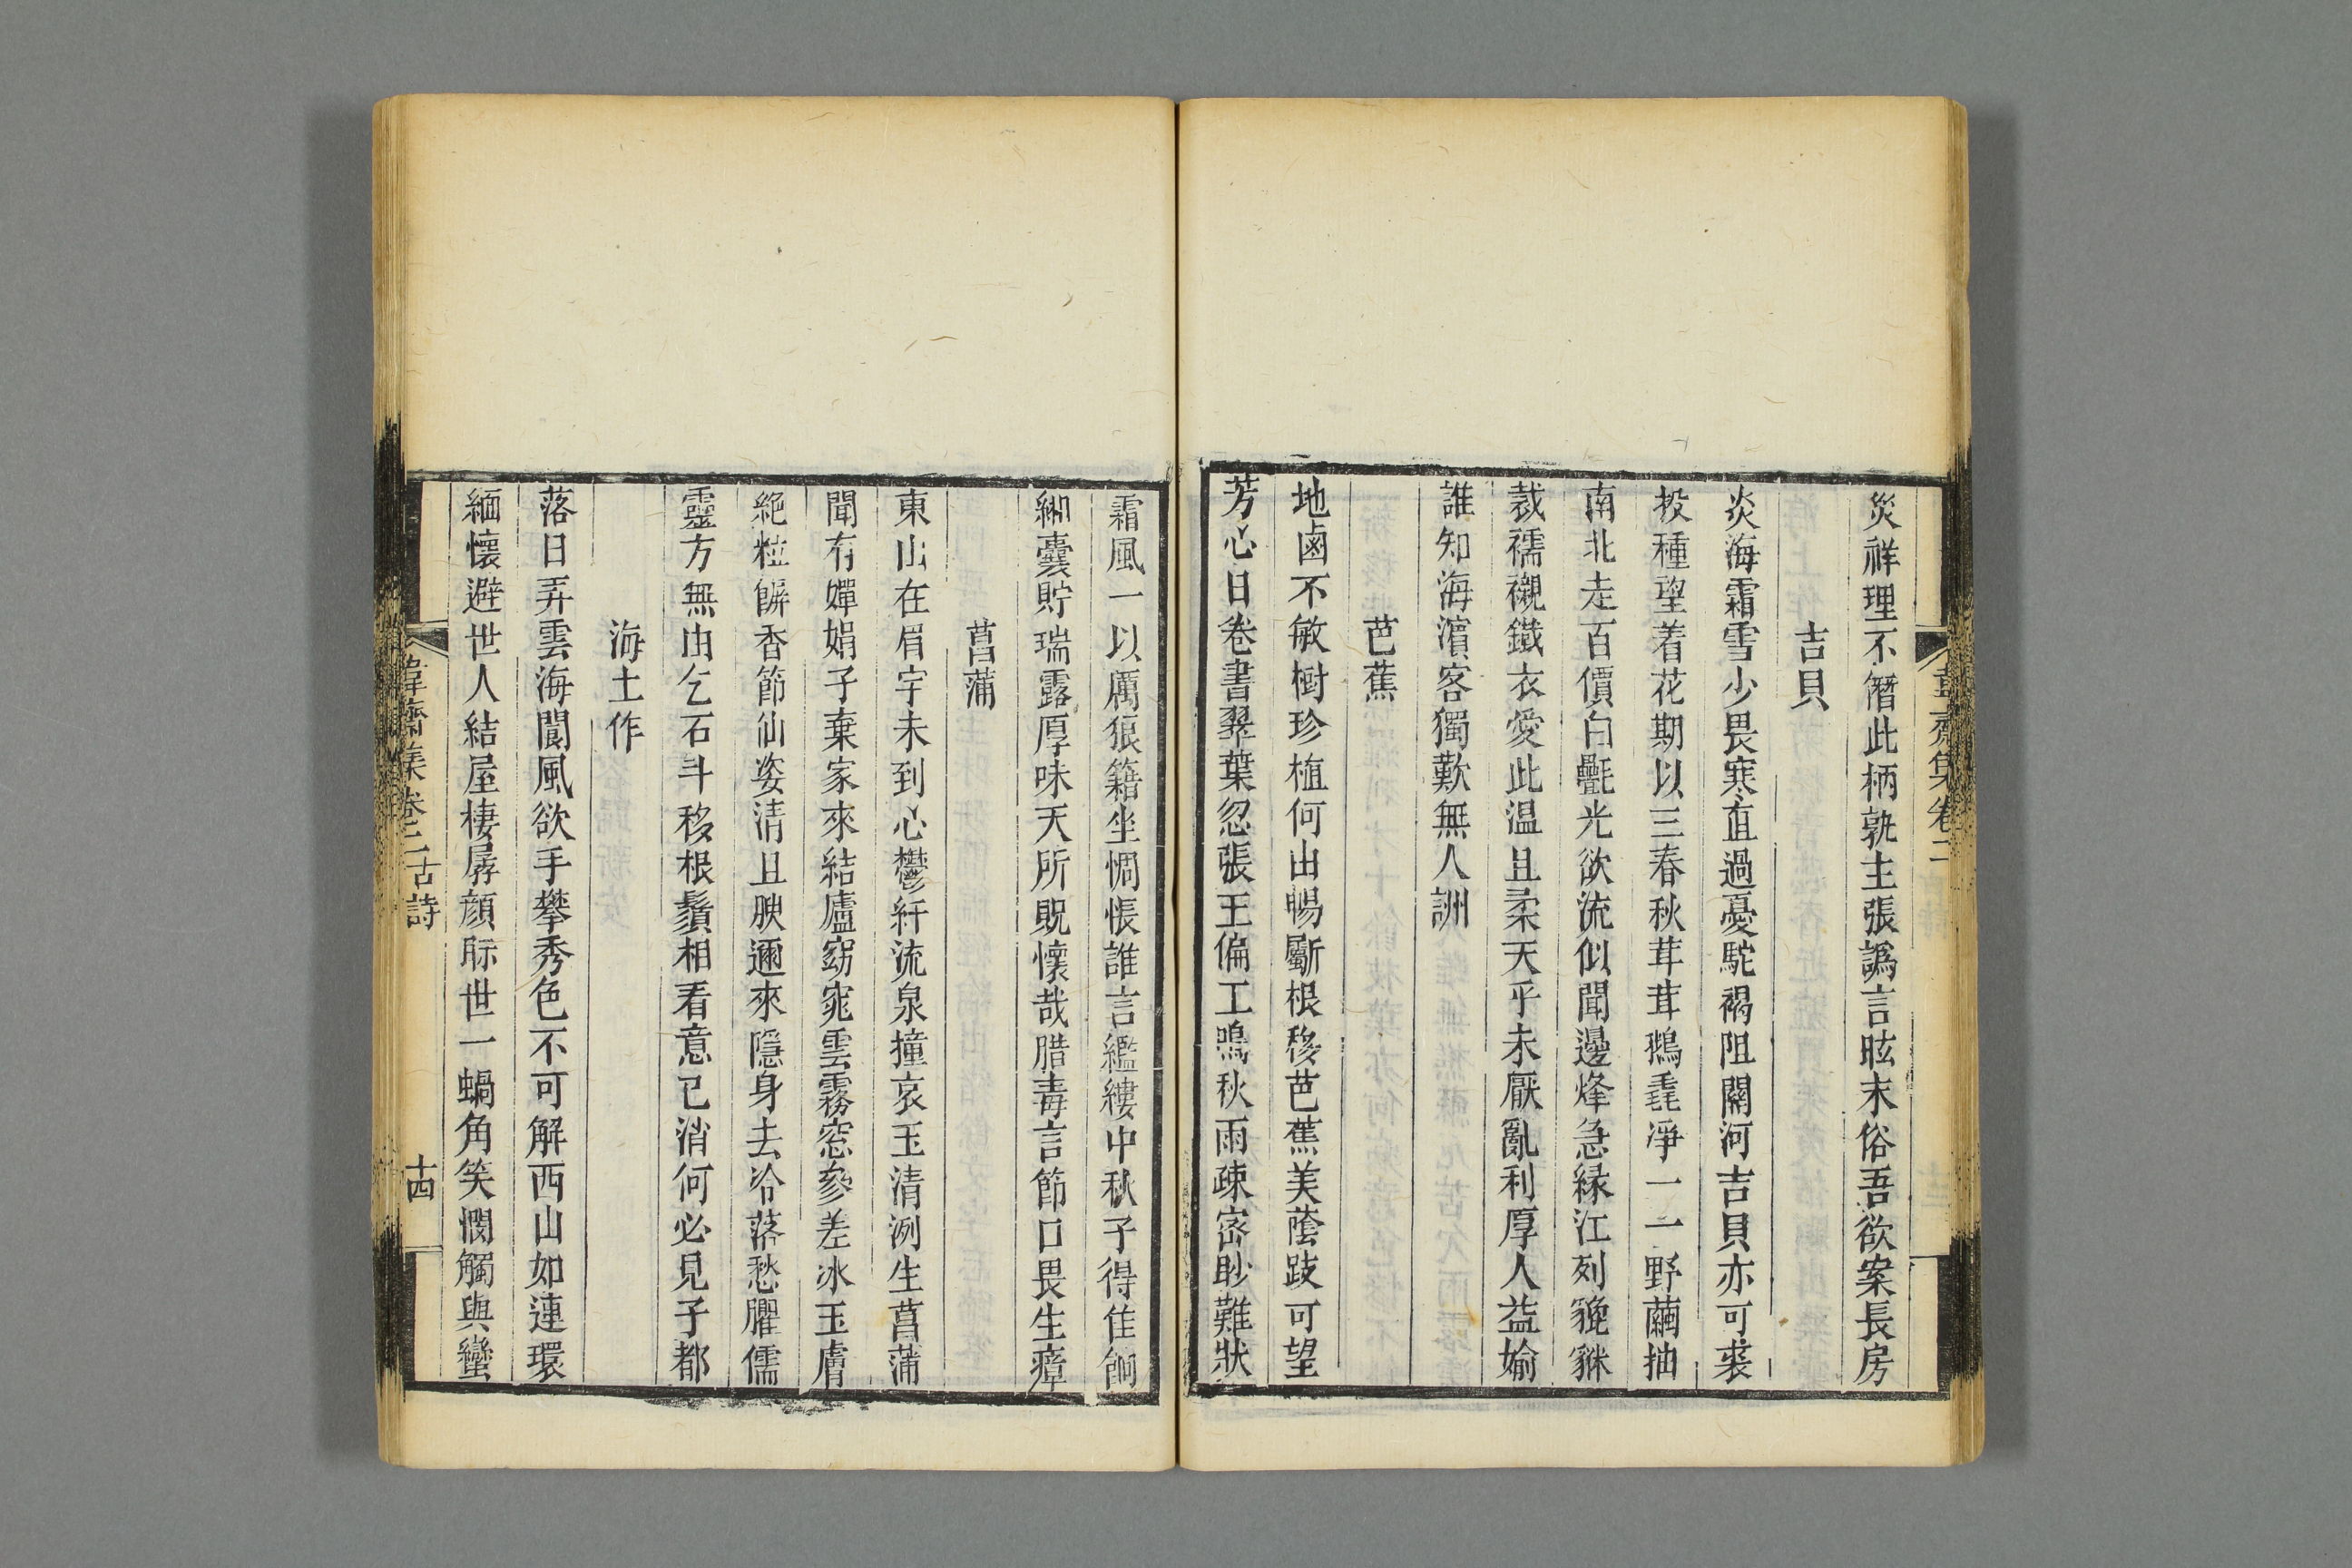 韋齋集卷二
災祥理不僭此柄孰主張譌言眩末俗吾欲案長房
吉貝
炎海霜雪少畏寒直過憂駝褐阻關河吉貝亦可裘
投種望着花期以三春秋茸茸鵝毳凈一一野繭抽
南北走百價白㲲光欲流似聞邊烽急緣江列貔貅
裁襦襯鐵衣愛此温且柔天乎未厭亂利厚人益媮
誰知海濵客獨歎無人詶
芭蕉
地鹵不敏樹珍植何由暢斸根移芭蕉美蔭跂可望
芳心日卷書翠葉忽張王偏工鳴秋雨疎宻眇難狀
霜風一以厲狼籍坐惆悵誰言繿縷中秋子得佳餉
緗囊貯瑞露厚味天所貺懷哉腊毒言節口畏生瘴
菖蒲
東山在眉宇未到心鬱紆流泉撞哀玉清洌生菖蒲
聞有嬋娟子棄家來結廬窈窕雲霧窓參差冰玉膚
絶粒餅香節仙姿清且腴邇來隱身去冷落愁臞儒
靈方無由乞石斗移根鬚相看意已消何必見子都
海土作
落日弄雲海閬風欲手攀秀色不可解西山如連環
緬懷避世人結屋棲孱顔眎世一蝸角笑憫觸與蠻
韋齋集卷二 古詩 十四